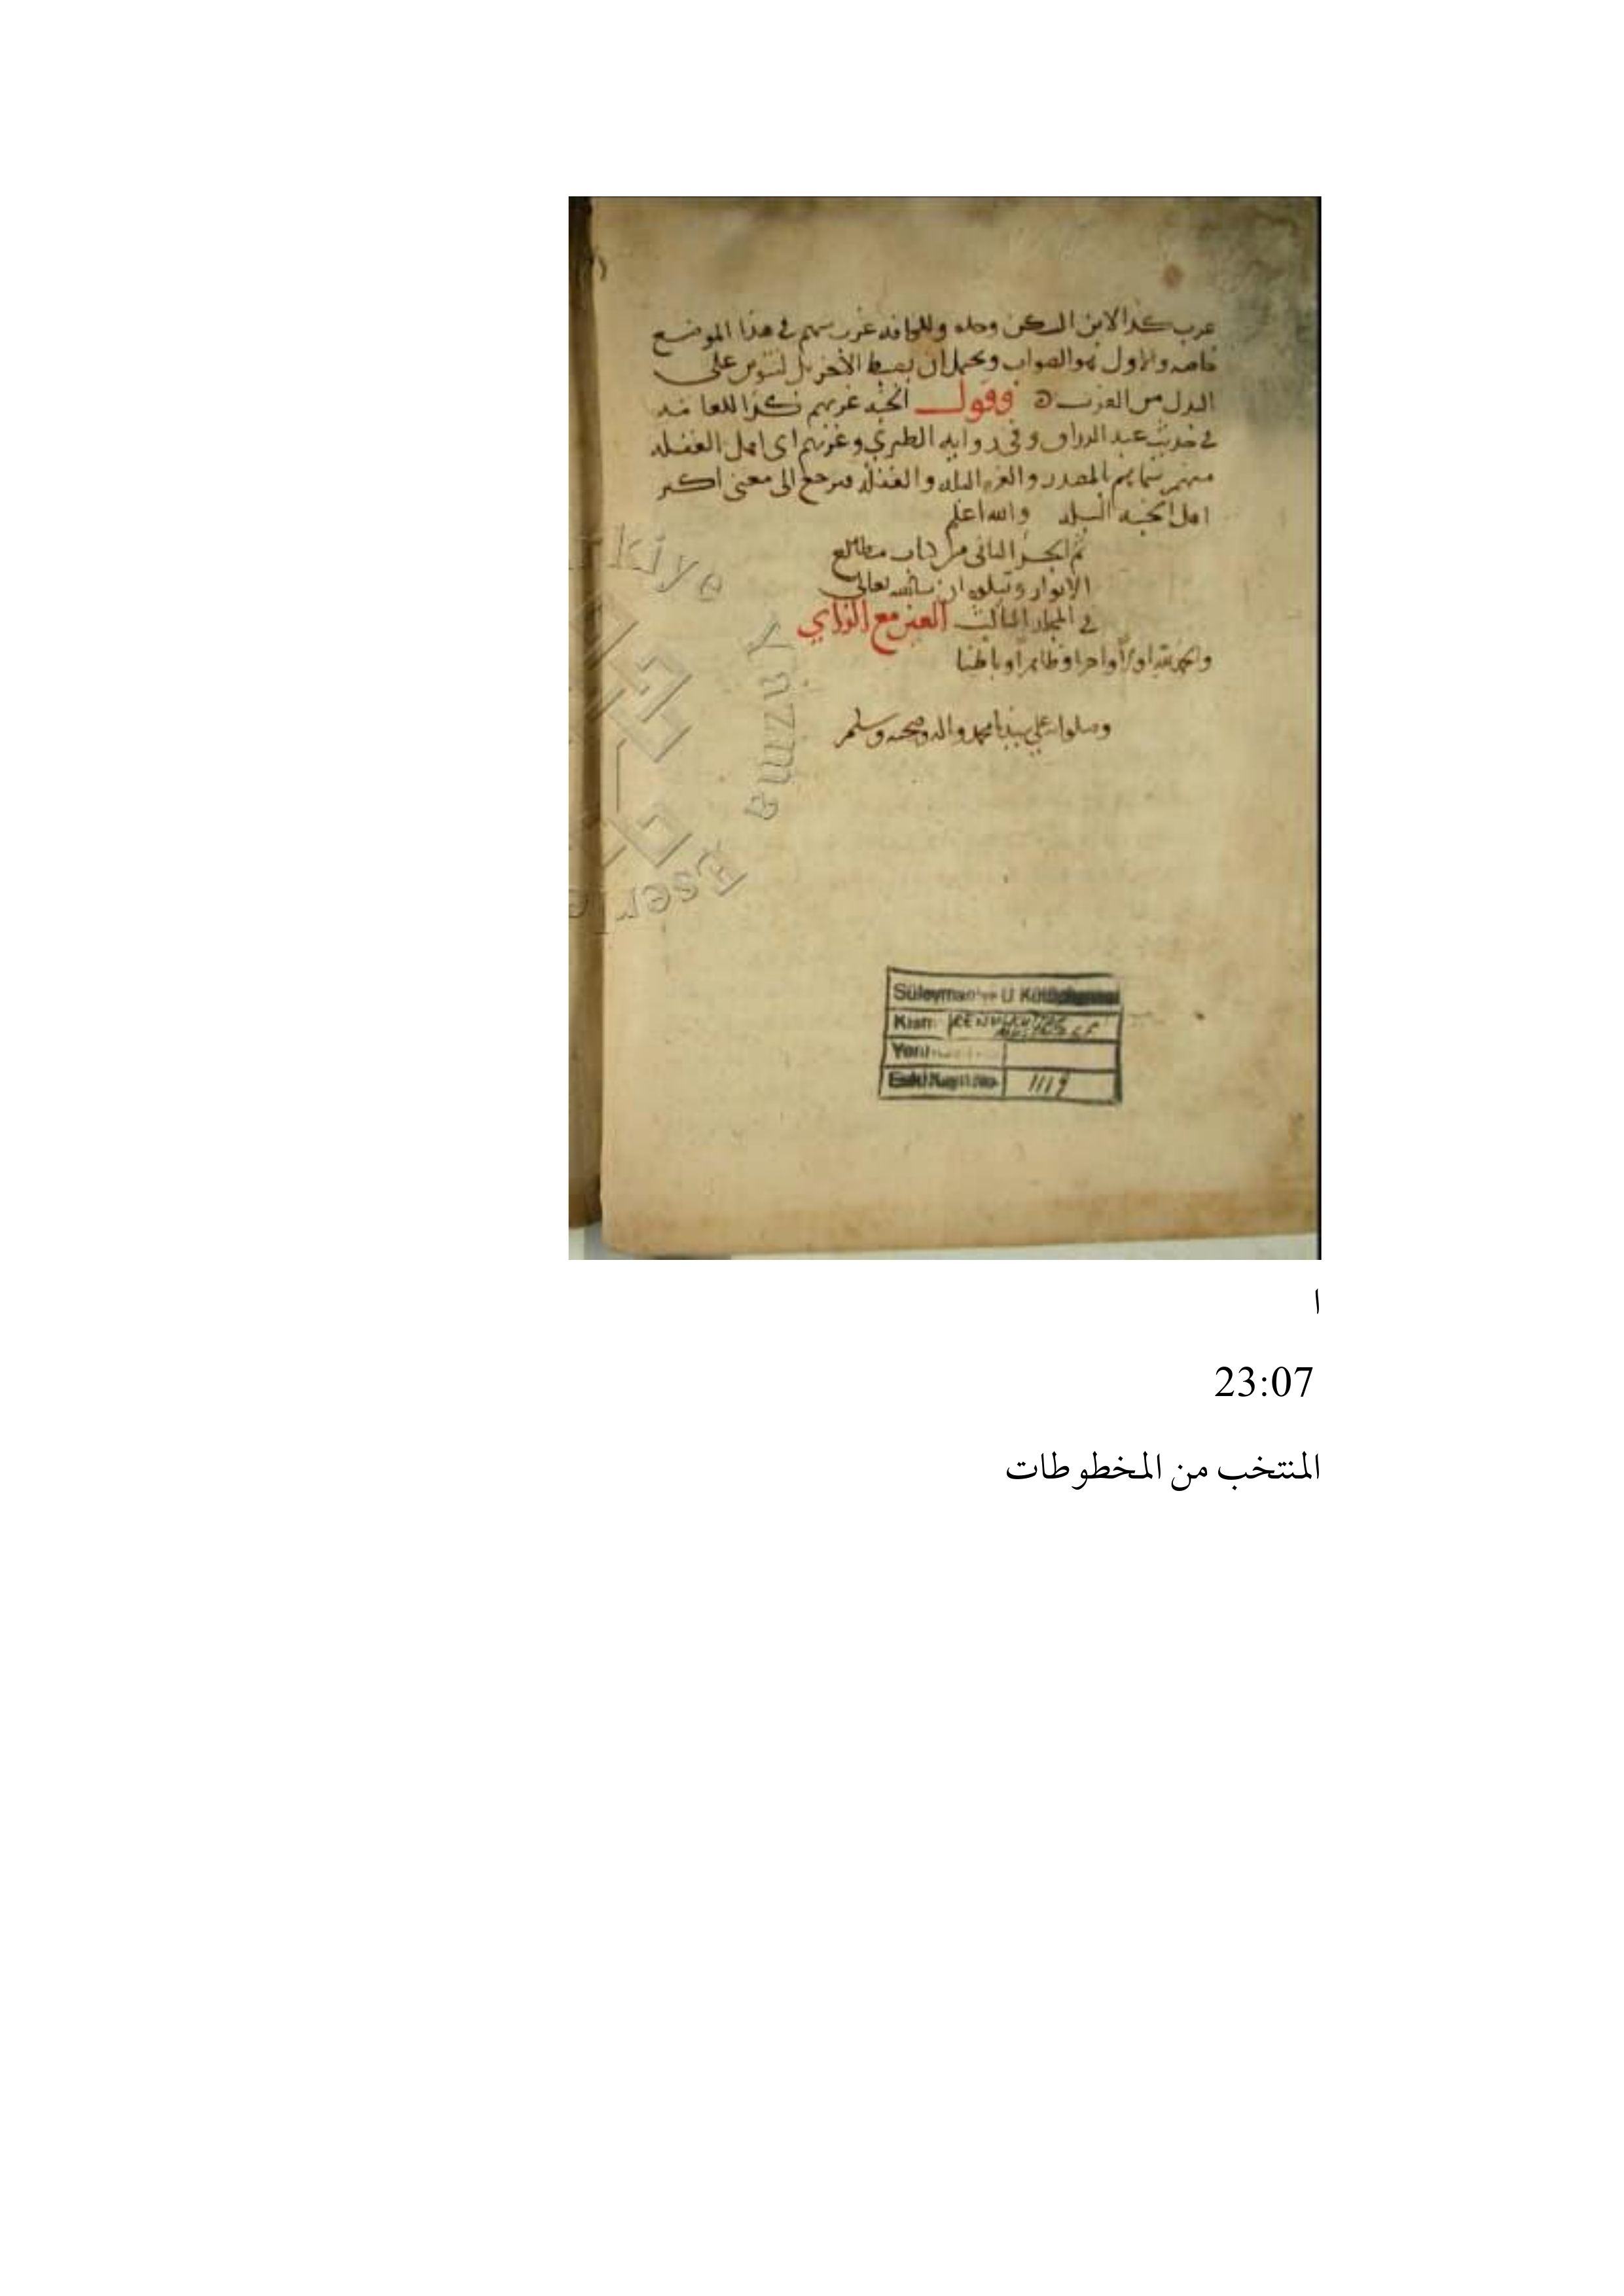 عرب كذا لابن السكن وحده وللكافه غرب سهم في هذا الموضع
خاصه والاول هو الصواب ويحتمل ان يضبط الآخر بل لتنوين على
البدل من الغرب ه وقول الجنه غرتهم كذا للعا
في حديث عبد الرزاق وفي روايه الطبري وغرتهم اى اهل الغفله
منهم سماهم بالمصدر والغره البله والغفله فيرجع الى معنى اكثر
اهل الجنه البله والله اعلم
تم الجزء الثانى من كتاب مطالع
الانوار ويتلوه ان شا الله تعالى
في المجلد الثالث الغين مع الزاي
والحمد لله اولا وآخرا وظاهرا وباطنا
وصلواته على سيدنا محمد واله وصحبه وسلم
Türkiye
Yazma
Eserle
Süleymaniye U Kütüphanesi
Kısmı
Yeni
Eski Kayıt No 1119
ا
23:07
المنتخب من المخطوطات